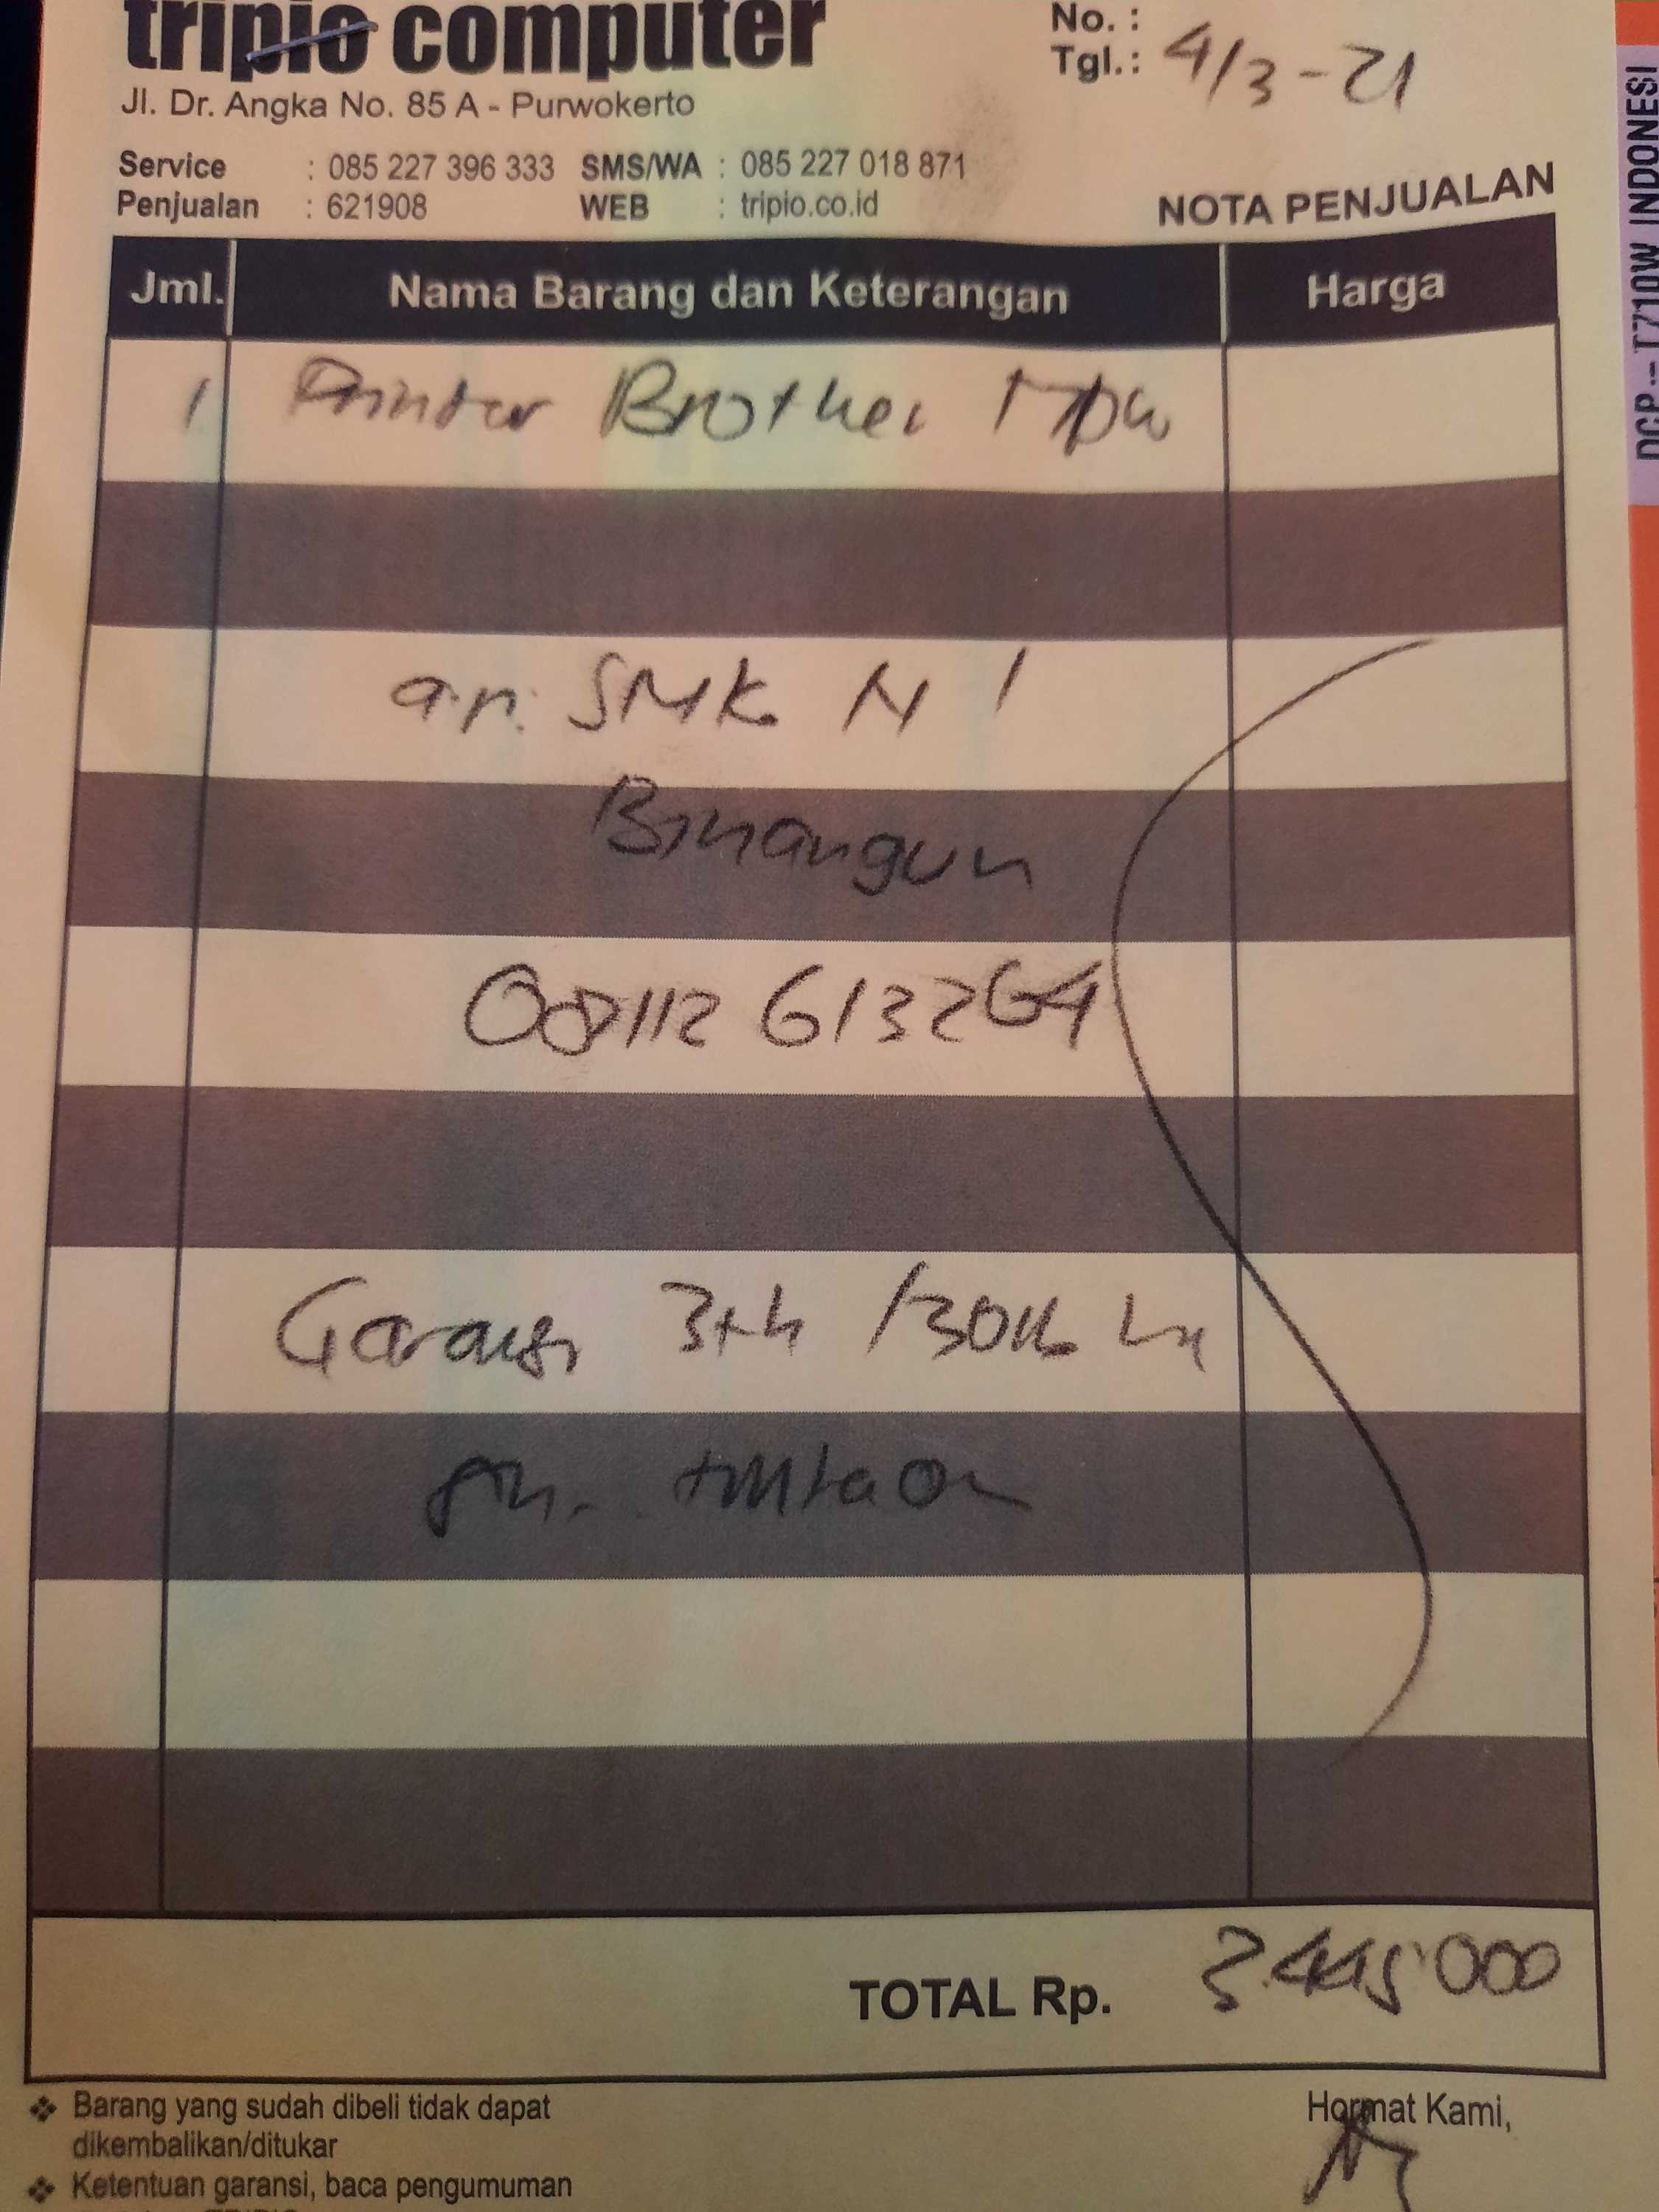 tripio computer
Jl. Dr. Angka No. 85 A - Purwokerto
No. :
Tgl. : 4/3-21
Service : 085 227 396 333 SMS/WA : 085 227 018 871
Penjualan : 621908 WEB : tripio.co.id
NOTA PENJUALAN
Jml. Nama Barang dan Keterangan Harga
1 Printer Brother
a.n. SMK N 1
Binangun
08112 613264
Garansi 3th /30rb
TOTAL Rp. 3.445.000
❖ Barang yang sudah dibeli tidak dapat
dikembalikan/ditukar
❖ Ketentuan garansi, baca pengumuman
Hormat Kami,
DCP - T710W INDONESI